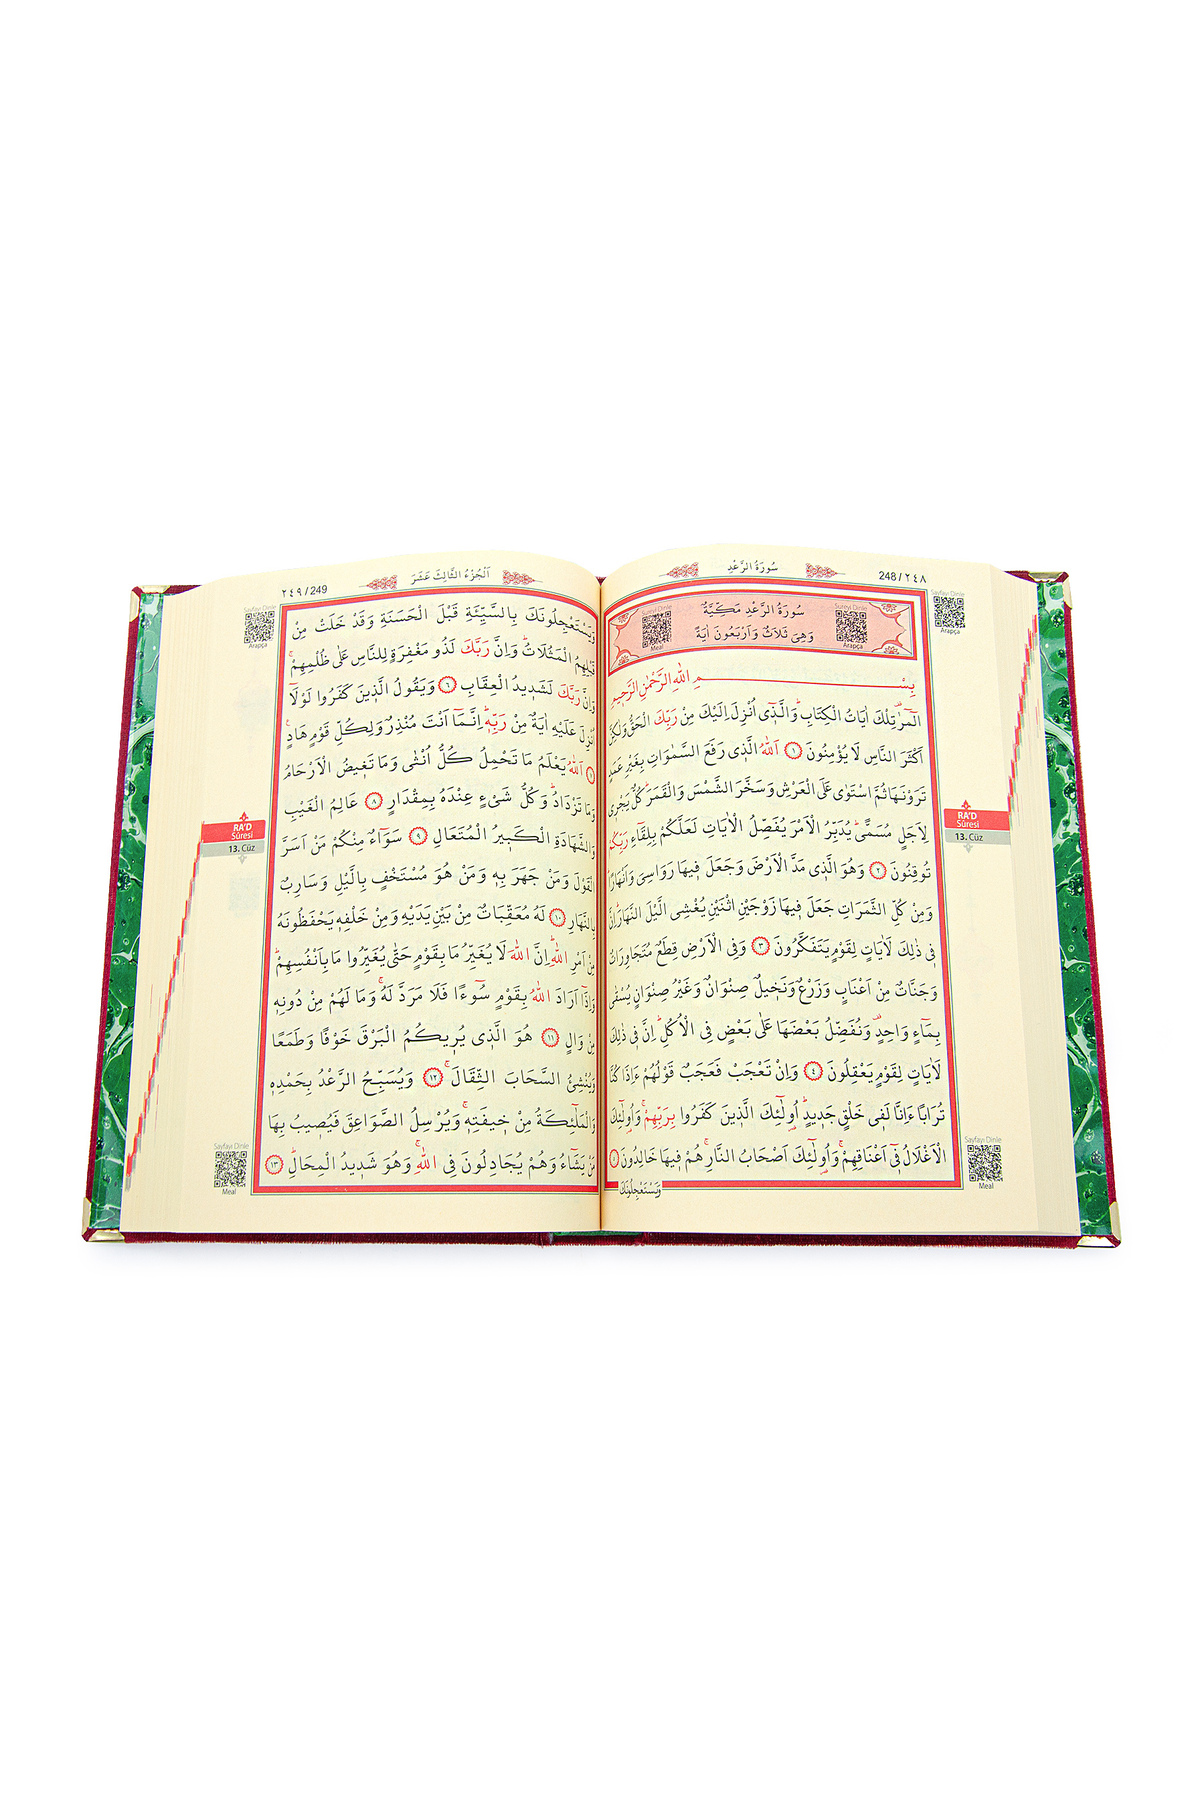 248 / ٢٤٨
سُورَةُ الرَّعْدِ
Sayfayı Dinle
Arapça
سُورَةُ الرَّعْدِ مَكِّيَّةٌ
وَهِىَ ثَلَاثٌ وَاَرْبَعُونَ اٰيَةً
Sureyi Dinle
Arapça
Sureyi Dinle
Meal
بِسْمِ اللّٰهِ الرَّحْمٰنِ الرَّحِيمِ
الٓمٓرٰ تِلْكَ اٰيَاتُ الْكِتَابِ وَالَّذٖٓى اُنْزِلَ اِلَيْكَ مِنْ رَبِّكَ الْحَقُّ وَلٰكِنَّ
اَكْثَرَ النَّاسِ لَا يُؤْمِنُونَ ١ اَللّٰهُ الَّذٖى رَفَعَ السَّمٰوَاتِ بِغَيْرِ عَمَدٍ
تَرَوْنَهَا ثُمَّ اسْتَوٰى عَلَى الْعَرْشِ وَسَخَّرَ الشَّمْسَ وَالْقَمَرَ كُلٌّ يَجْرٖى
لِاَجَلٍ مُسَمًّى يُدَبِّرُ الْاَمْرَ يُفَصِّلُ الْاٰيَاتِ لَعَلَّكُمْ بِلِقَٓاءِ رَبِّكُمْ
تُوقِنُونَ ٢ وَهُوَ الَّذٖى مَدَّ الْاَرْضَ وَجَعَلَ فٖيهَا رَوَاسِىَ وَاَنْهَارًا
وَمِنْ كُلِّ الثَّمَرَاتِ جَعَلَ فٖيهَا زَوْجَيْنِ اثْنَيْنِ يُغْشِى الَّيْلَ النَّهَارَ اِنَّ
فٖى ذٰلِكَ لَاٰيَاتٍ لِقَوْمٍ يَتَفَكَّرُونَ ٣ وَفِى الْاَرْضِ قِطَعٌ مُتَجَاوِرَاتٌ
وَجَنَّاتٌ مِنْ اَعْنَابٍ وَزَرْعٌ وَنَخٖيلٌ صِنْوَانٌ وَغَيْرُ صِنْوَانٍ يُسْقٰى
بِمَٓاءٍ وَاحِدٍ وَنُفَضِّلُ بَعْضَهَا عَلٰى بَعْضٍ فِى الْاُكُلِ اِنَّ فٖى ذٰلِكَ
لَاٰيَاتٍ لِقَوْمٍ يَعْقِلُونَ ٤ وَاِنْ تَعْجَبْ فَعَجَبٌ قَوْلُهُمْ ءَاِذَا كُنَّا
تُرَابًا ءَاِنَّا لَفٖى خَلْقٍ جَدٖيدٍ اُو۬لٰٓئِكَ الَّذٖينَ كَفَرُوا بِرَبِّهِمْ وَاُو۬لٰٓئِكَ
الْاَغْلَالُ فٖٓى اَعْنَاقِهِمْ وَاُو۬لٰٓئِكَ اَصْحَابُ النَّارِ هُمْ فٖيهَا خَالِدُونَ ٥
وَيَسْتَعْجِلُونَكَ
RA'D
Sûresi
13. Cüz
Sayfayı Dinle
Meal
اَلْجُزْءُ الثَّالِثَ عَشَرَ
٢٤٩ / 249
Sayfayı Dinle
Arapça
وَيَسْتَعْجِلُونَكَ بِالسَّيِّئَةِ قَبْلَ الْحَسَنَةِ وَقَدْ خَلَتْ مِنْ
قَبْلِهِمُ الْمَثُلَاتُ وَاِنَّ رَبَّكَ لَذُو مَغْفِرَةٍ لِلنَّاسِ عَلٰى ظُلْمِهِمْ
وَاِنَّ رَبَّكَ لَشَدٖيدُ الْعِقَابِ ٦ وَيَقُولُ الَّذٖينَ كَفَرُوا لَوْلَٓا
اُنْزِلَ عَلَيْهِ اٰيَةٌ مِنْ رَبِّهٖ اِنَّمَٓا اَنْتَ مُنْذِرٌ وَلِكُلِّ قَوْمٍ هَادٍ
٧ اَللّٰهُ يَعْلَمُ مَا تَحْمِلُ كُلُّ اُنْثٰى وَمَا تَغٖيضُ الْاَرْحَامُ
وَمَا تَزْدَادُ وَكُلُّ شَىْءٍ عِنْدَهُ بِمِقْدَارٍ ٨ عَالِمُ الْغَيْبِ
وَالشَّهَادَةِ الْكَبٖيرُ الْمُتَعَالِ ٩ سَوَٓاءٌ مِنْكُمْ مَنْ اَسَرَّ
الْقَوْلَ وَمَنْ جَهَرَ بِهٖ وَمَنْ هُوَ مُسْتَخْفٍ بِالَّيْلِ وَسَارِبٌ
بِالنَّهَارِ ١٠ لَهُ مُعَقِّبَاتٌ مِنْ بَيْنِ يَدَيْهِ وَمِنْ خَلْفِهٖ يَحْفَظُونَهُ
مِنْ اَمْرِ اللّٰهِ اِنَّ اللّٰهَ لَا يُغَيِّرُ مَا بِقَوْمٍ حَتّٰى يُغَيِّرُوا مَا بِاَنْفُسِهِمْ
وَاِذَٓا اَرَادَ اللّٰهُ بِقَوْمٍ سُٓوءًا فَلَا مَرَدَّ لَهُ وَمَا لَهُمْ مِنْ دُونِهٖ
مِنْ وَالٍ ١١ هُوَ الَّذٖى يُرٖيكُمُ الْبَرْقَ خَوْفًا وَطَمَعًا
وَيُنْشِئُ السَّحَابَ الثِّقَالَ ١٢ وَيُسَبِّحُ الرَّعْدُ بِحَمْدِهٖ
وَالْمَلٰٓئِكَةُ مِنْ خٖيفَتِهٖ وَيُرْسِلُ الصَّوَاعِقَ فَيُصٖيبُ بِهَا
مَنْ يَشَٓاءُ وَهُمْ يُجَادِلُونَ فِى اللّٰهِ وَهُوَ شَدٖيدُ الْمِحَالِ ١٣
RA'D
Sûresi
13. Cüz
Sayfayı Dinle
Meal